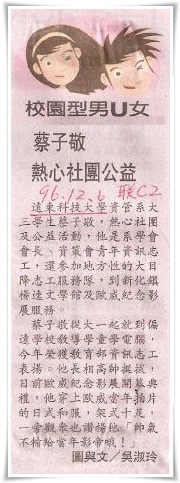 校園型男U女
蔡子敬
熱心社團公益
96.12.6 聯C2
遠東科技大學資管系大
三學生蔡子敬，熱心社團
及公益活動，他是系學會
會長、資策會青年資訊志
工，還參加地方性的大目
降志工服務隊，到新化鎮
楊逵文學館及歐威紀念影
展服務。
蔡子敬從大一起就到偏
遠學校教導學童學電腦，
今年榮獲教育部資訊志工
表揚。他長相高帥挺拔，
目前歐威紀念影展開幕典
禮，他穿上歐威當年拍片
的日式和服，架式十足，
一旁觀眾也讚楊他「帥氣
不輸給當年影帝哦！」
圖與文／吳淑玲